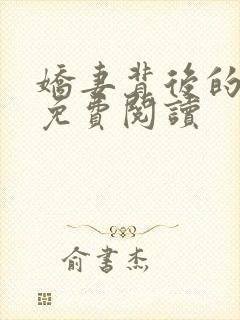 嬌妻背後的
免費閱讀
俞書杰